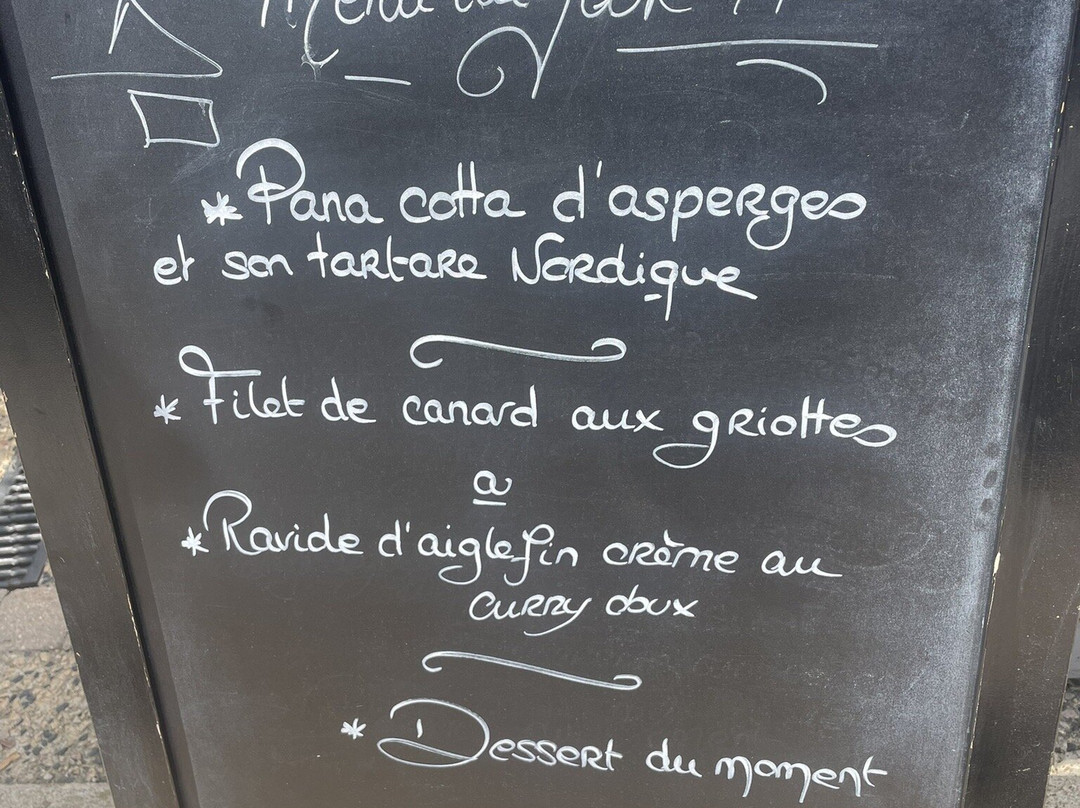 Menu du jour
*Pana cotta d'asperges
et son tartare Nordique
* Filet de canard aux griottes
a
* Ravide d'aiglefin crème au
curry doux
* Dessert du moment